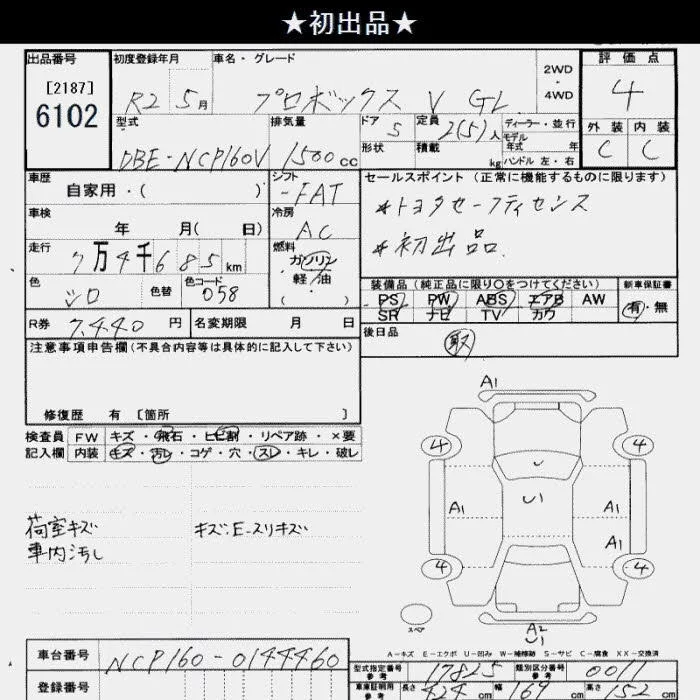 ★初出品★
出品番号
[2187]
6102
初度登録年月
R2 5月
車名・グレード
プロボックス V GL
2WD
・
4WD
評価点
4
外装 内装
C C
型式
DBE-NCP160V
排気量
1500cc
ドア
5
形状
定員
2(5)人
積載
kg
ディーラー・並行
モデル
年式 年
ハンドル 左・右
車歴
自家用・( )
シフト
FAT
車検
年 月( 日)
冷房
AC
走行
7万4千685km
燃料
ガソリン
軽油
( ・ )
色
シロ
色替
色コード
058
R券
7,440円
名変期限 月 日
セールスポイント(正常に機能するものに限ります)
*トヨタセーフティセンス
*初出品.
装備品(純正品に限り○をつけてください)
PS PW ABS エアB AW
SR ナビ TV カワ
新車保証書
有・無
後日品
取
注意事項申告欄(不具合内容等は具体的に記入して下さい)
修復歴 有〔箇所 〕
検査員
記入欄
FW キズ・飛石・ヒビ割・リペア跡・×要
内装 キズ・汚レ・コゲ・穴・スレ・キレ・破レ
荷室キズ
車内汚し
キズ・E-スリキズ
A1
4 4
U
U1
A1 A1
A1
4 4
スペア
A2
U1
A-キズ E-エクボ U-凹み W-補修跡 S-サビ C-腐食 XX-交換済
車台番号
NCP160-0144460
登録番号
型式指定番号
参考
17825
類別区分番号
参考
0011
車庫証明用
参考
長さ
424cm
幅
169cm
高さ
152cm